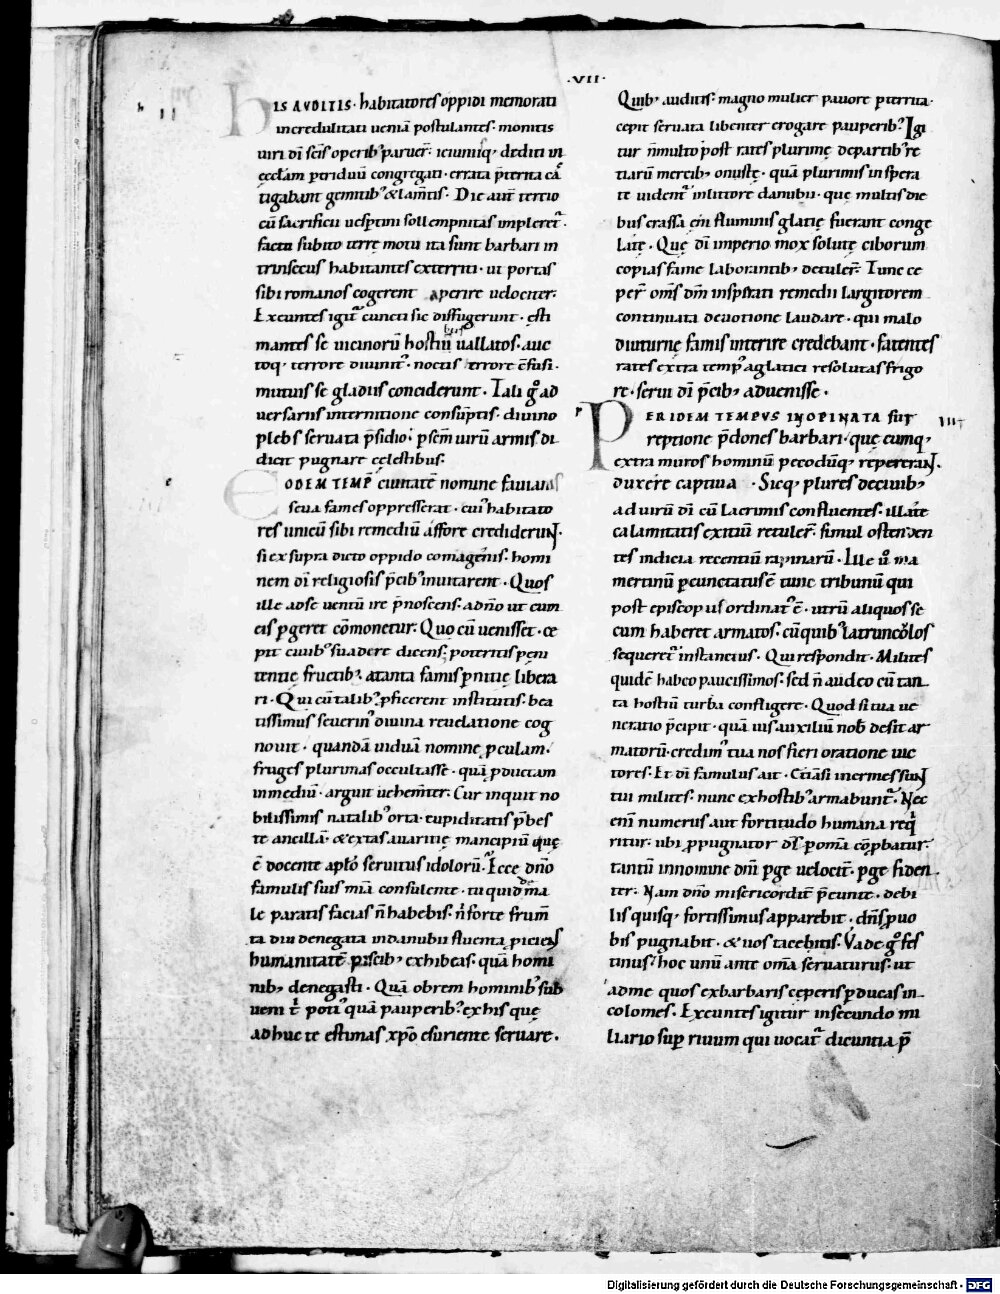 ·VII·
h II
HIS AVDITIS· habitatores oppidi memorati
incredulitati ueniā postulantes· monitis
uiri dī sc̄is operib; paruer̄· ieiuniiq; dediti in
ęccłam p triduū congregati· errata p̄terita cas
tigabant gemitib; & lam̄tis· Die aut̄ tertio
cū sacrificii uesp̄tini sollempnitas impleret᷑·
facto subito terrę motu ita sunt barbari in
trinsecus habitantes exterriti· ut portas
sibi romanos cogerent aperire uelociter·
Exeuntes igit᷑ cuncti sic diffugerunt· ęsti
mantes se uicinorū hostiū uallatos· auc
toq; terrore diuinit᷑· noctis errore c̄fusi·
mutuis se gladiis conciderunt· Tali g̊ ad
uersariis internitione consūptis· diuino
plebs seruata p̄sidio· p sc̄m uirū armis di
dicit pugnare cęlestibus·
e EODEM TEMP̄ ciuitatē nomine fauianis
seua fames oppresserat· cui᷒ habitato
res unicū sibi remediū affore crediderunt·
si ex supra dicto oppido comagenis· homi
nem dī religiosis p̄cib; inuitarent· Quos
ille ad se uentū ire p̄noscens· a dn̄o ut cum
eis pgeret cōmonetur· Quo cū uenisset· cę
pit ciuib; suadere dicens· poteritis peni
tentię fructib; a tanta famis pnitię libera
ri· Qui cū talib; pficerent institutis· bea
tissimus seuerin᷒ diuina reuelatione cog
nouit· quandā uiduā nomine pculam·
fruges plurimas occultasse· quā pductam
in mediū· arguit uehem̄ter· Cur inquit no
bilissimis natalib; orta· cupiditatis p̄bes
te ancillā· & extas auaritię mancipiū quę
ē docente apło seruitus idolorū· Ecce dn̄o
famulis suis mīa consulente· tu quid de ma
le paratis facias n̄ habebis· n̄ forte frum̄
ta diu denegata in danubii fluenta piciens
humanitatē piscib; exhibeas· quā homi
nib; denegasti· Quā obrem hominib; sub
ueni t̄ poti᷒ quā pauperib; ex his que
adhuc te estimas xp̄o esuriente seruare·
Quib; auditis· magno mulier pauore pterrita·
cepit seruata libenter erogare pauperib; Igi
tur n̄ multo post rates plurimę de partib; re
tiarū mercib; onustę· quā plurimis inspera
tę uident᷑ in littore danubii· quę multis die
bus crassa eni fluminis glatię fuerant conge
latę· Quę dī imperio mox solutę ciborum
copias fame laborantib; detuler̄· Tunc ce
per̄ om̄s dm̄ insp̄rati remedii largitorem
continuata deuotione laudare· qui malo
diuturnę famis interire credebant· fatentes
rates extra temp᷒ a glatiei resolutas frigo
re· serui dī p̄cib; aduenisse·
p PER IDEM TEMPVS INOPINATA sur IIII
reptione p̄dones barbari· quę cumq;
extra muros hominū pecodūq; reperirerant·
duxere captiua· Sicq; plures de ciuib;
ad uirū dī cū lacrimis confluentes· illatę
calamitatis exitiū retuler̄· simul ostenden
tes indicia recentiū rapinarū· Ille ū ma
mertinū pcunctatus ē tunc tribunū qui
post episcopus ordinat᷒ ē· utrū aliquos se
cum haberet armatos· cū quib; latrunculos
sequeret᷑ instancius· Qui respondit· Milites
quidē habeo paucissimos· sed n̄ audeo cū tan
ta hostiū turba confligere· Quod si tua ue
neratio p̄cipit· quā uis auxiliū nob̄ desit ar
matorū· credim᷒ tua nos fieri oratione uic
tores· Et dī famulus ait· Etiāsi inermes sunt
tui milites· nunc ex hostib; armabunt᷑· Nec
eni numerus aut fortitudo humana req̇
ritur· ubi ppugnator ds̄ p om̄a cōpbatur·
tantū in nomine dn̄i pge uelocit̄· pge fiden
ter· Nam dn̄o misericordit̄ p̄eunte· debi
lis quisq; fortissimus apparebit· dn̄s p uo
bis pugnabit· & uos tacebitis· Vade g̊ fes
tinus· hoc unū ante om̄a seruaturus· ut
ad me quos ex barbaris ceperis pducas in
colomes· Exeuntes igitur in secundo mi
liario sup riuum qui uocat᷑ dicuntia p̄
Digitalisierung gefördert durch die Deutsche Forschungsgemeinschaft - DFG